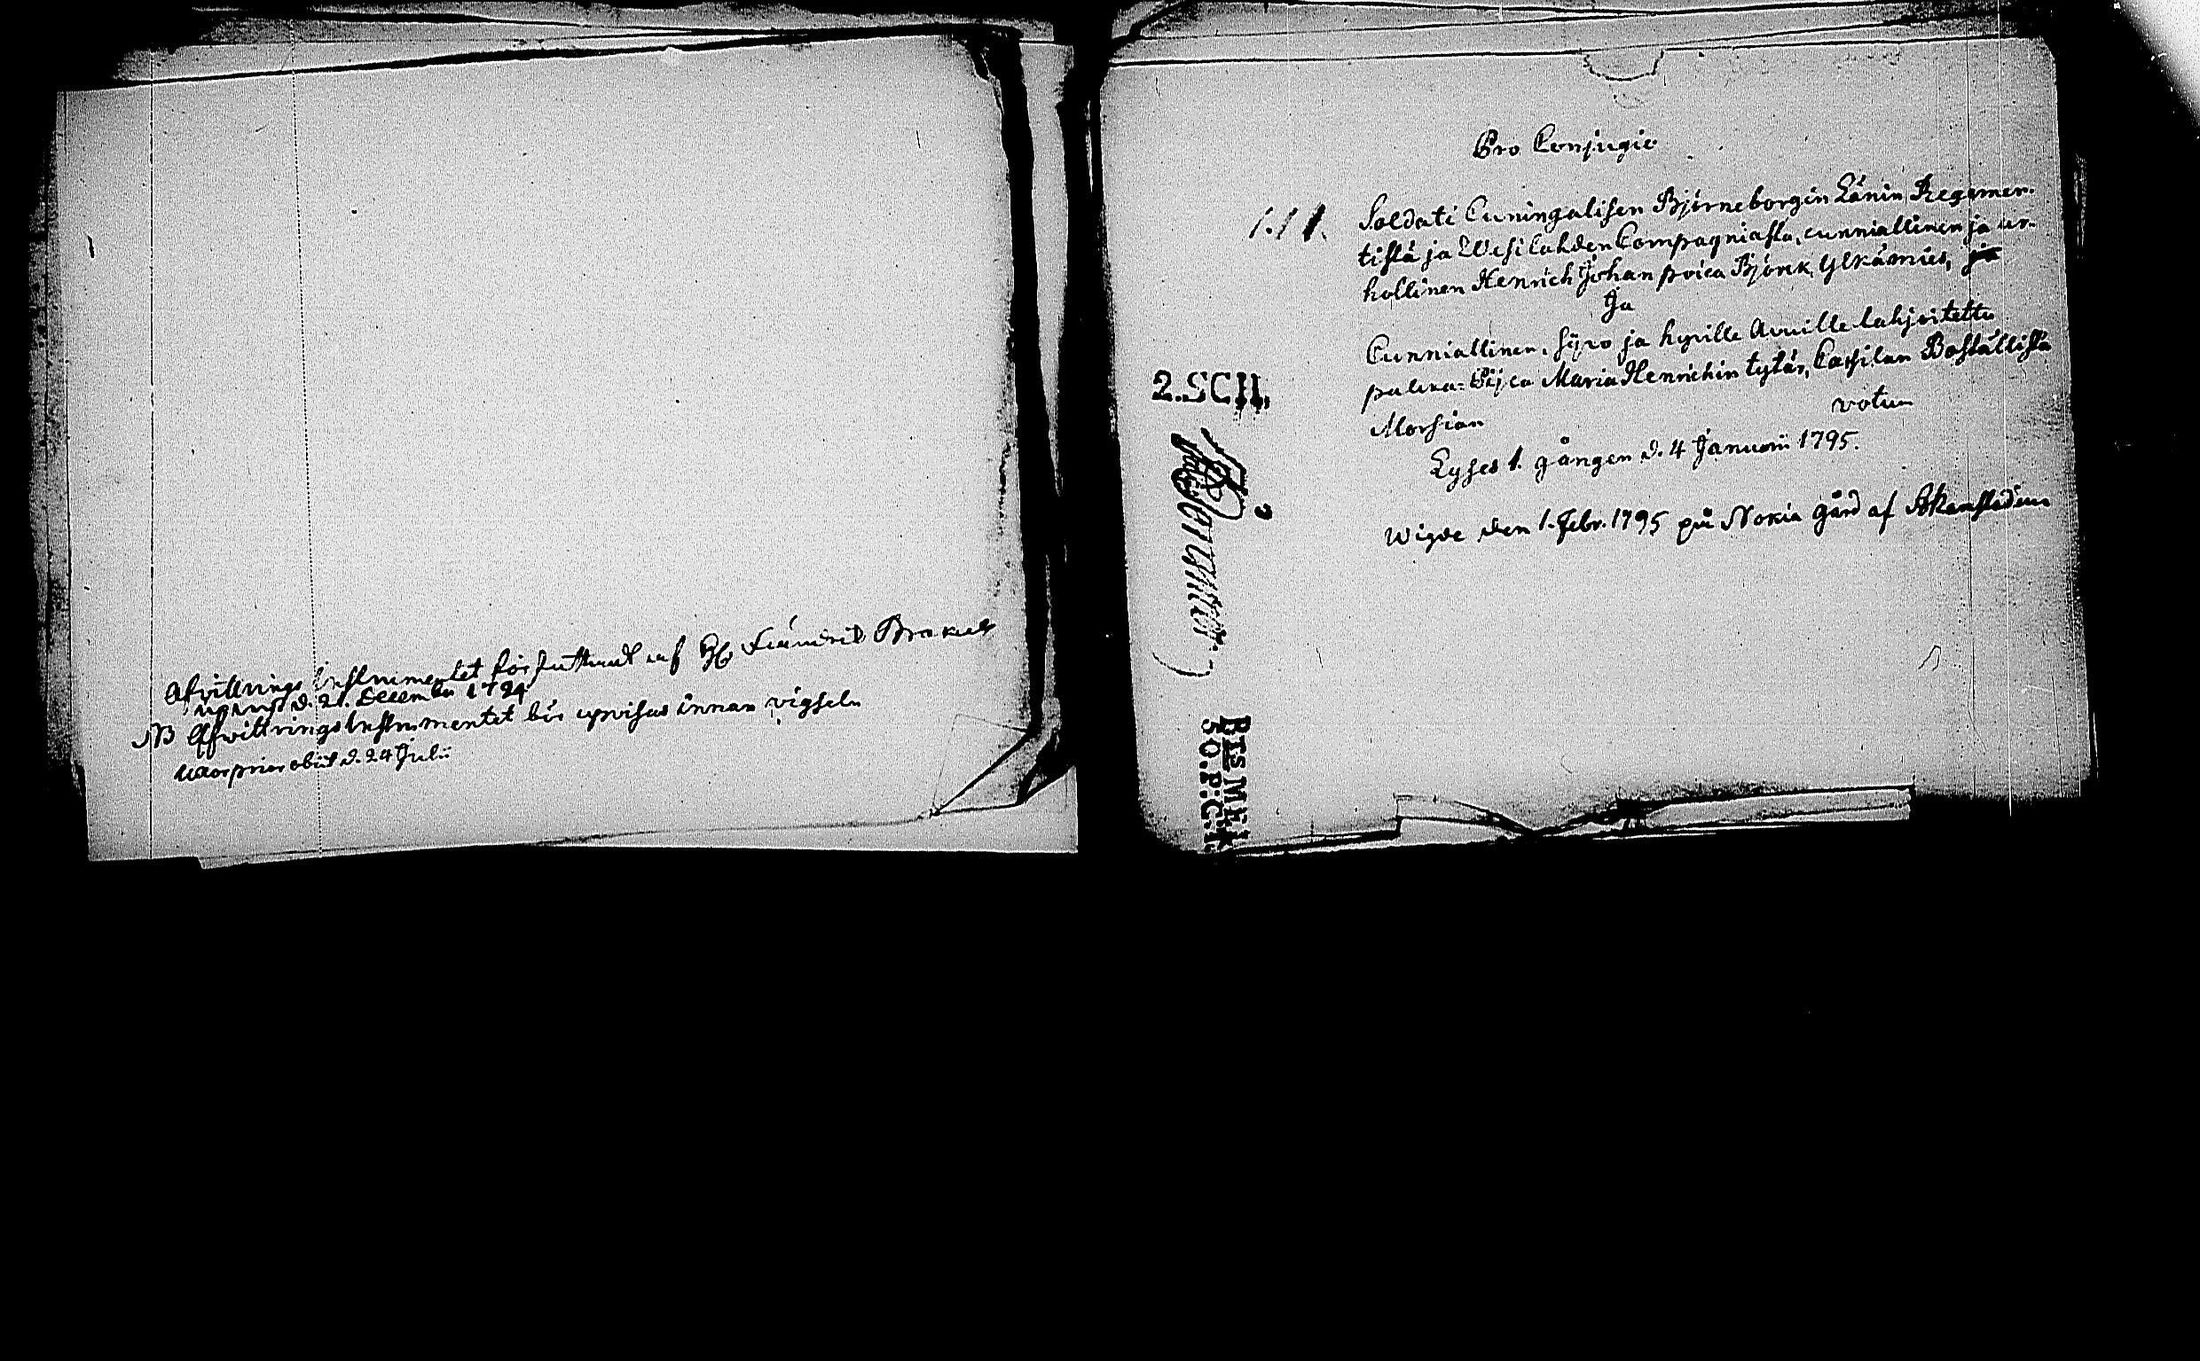 Afvittrings Instrumentet författadt af
d. 21. December 1794
NB Afwittrings Instrumentet bör upvisas innan vigseln
Uxor prior obiit d. 24 Julii
Pro Conjugio
1. 1 1.
Soldati Cuningalisen Björneborgin Länin Regemen-
tistä ja Wesilahden Compagniasta, cunniallinen ja ur-
hollinen Henrich Johan poica Björck, Yleämies, ja
Ja
Cunniallinen, Siyo ja hywille Avuille lahjoitettu
palcka-Pijca Maria Henrichin tytär, Boställistä
Morsian
votum
Lyses 1. gången d. 4 Januarii 1795.
Wigde den 1. Febr. 1795 på Nokia gård af
2.SCH,
BTS MEH
50.P.C.I.